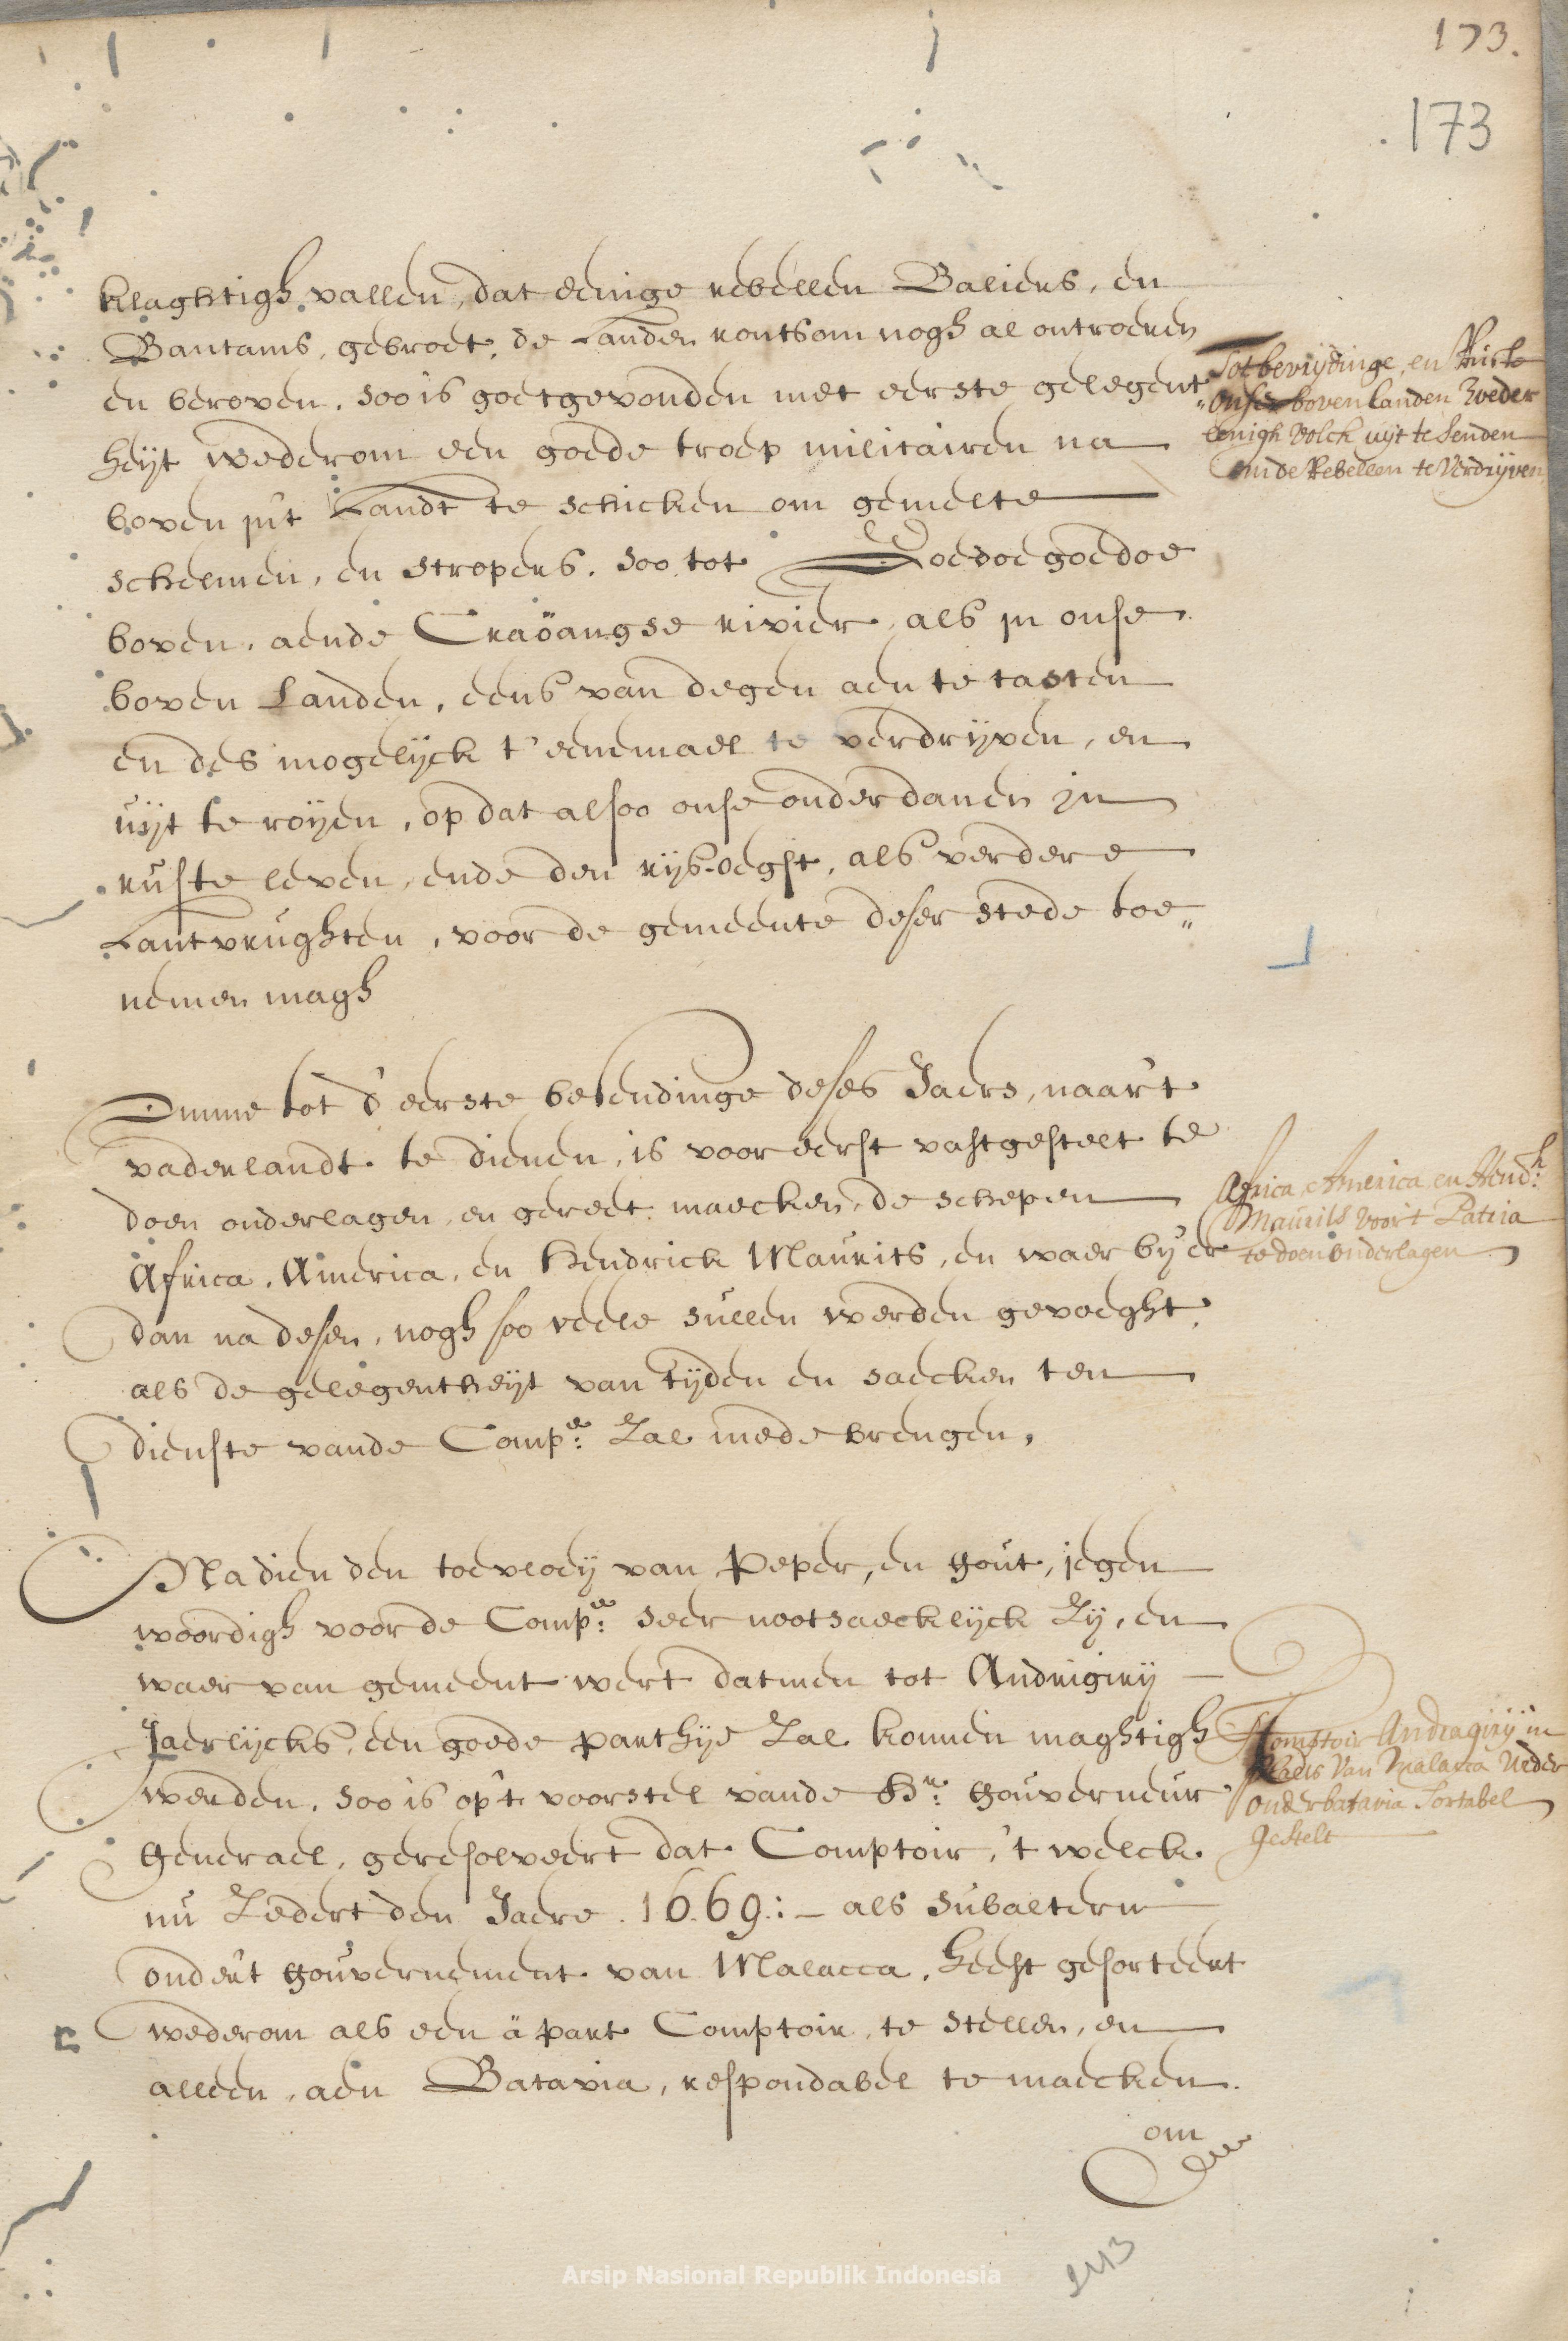 173.
173
klaghtigh vallen, dat eenige rebellen Baliers, en
Bantams, gebroet, de Landen rontsom nogh al ontroeren
en beroven, soo is goetgevonden met eerste gelegent„
heijt wederom een goede troep militairen na
boven in't Landt te schicken om gemelte
schelmen, en stropers, soo tot Goedoegoedoe
boven, aende Craöangse rivier, als in onse
boven Landen, eens van degen aen te tasten
en des mogelijck t'eenmael te verdrijven, en
uijt te roijen, op dat alsoo onse onderdanen in
ruste leven, ende den rijs-oegst, als verdere
Lantvrughten, voor de gemeente deser stede toe„
nemen magh
Tot bevrijdinge, en Ruste
onser boven landen weder
eenigh volck uijt te senden
om de Rebellen te verdrijven
Omme tot d'eerste besendinge deses Jaers, naar't
vaderlandt te dienen, is voor eerst vastgestelt te
doen onderlagen, en gereet maecken, de schepen
Africa, America, en Hendrick Maurits, en waer bij er
dan na desen, nogh soo veele sullen werden gevoeght,
als de gelegentheijt van tijden en saecken ten
dienste vande Compe: Zal mede brengen,
Africa, America, en Hendk:
Maurits voor't Patria
te doen onderlagen
Nadien den toevloeij van Peper, en gout, jegen
woordigh voor de Compe: seer nootsaecklijck Zij, en
waer van gemeent wert datmen tot Andrigirij
Jaerlijcks, een goede parthije Zal konnen maghtigh
werden, soo is op't voorstel vande Hr: Gouverneur
Generael, geresolveert dat Comptoir, 't welck
nu Zedert den Jaere 1669:- als subaltern
onder't gouvernement van Malacca, heeft gesorteert
wederom als een à part Comptoir, te stellen, en
alleen, aen Batavia, respondabel te maecken.
om
't Comptoir Andragirij in
plaets van Malacca weder
onder batavia Sortabel
gestelt
2113
Arsip Nasional Republik Indonesia